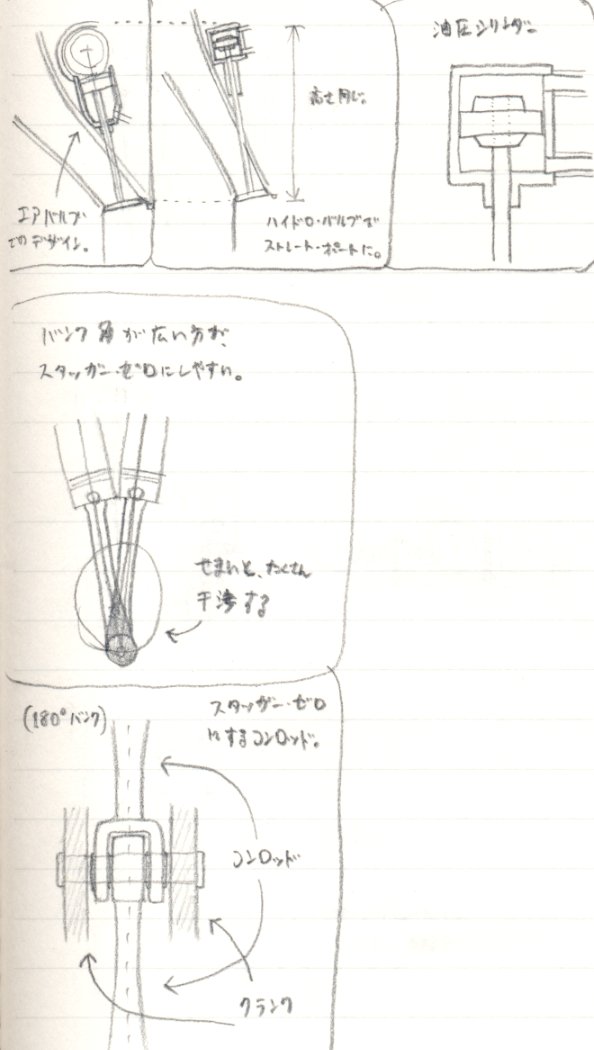 油圧シリンダー
高さ同じ。
エアバルブ
でのデザイン。
ハイドロ・バルブで
ストレート・ポートに。
バンク角が広い方が、
スタッガー・ゼロにしやすい。
せまいと、たくさん
干渉する
(180°バンク)
スタッガー・ゼロ
にするコンロッド。
コンロッド
クランク